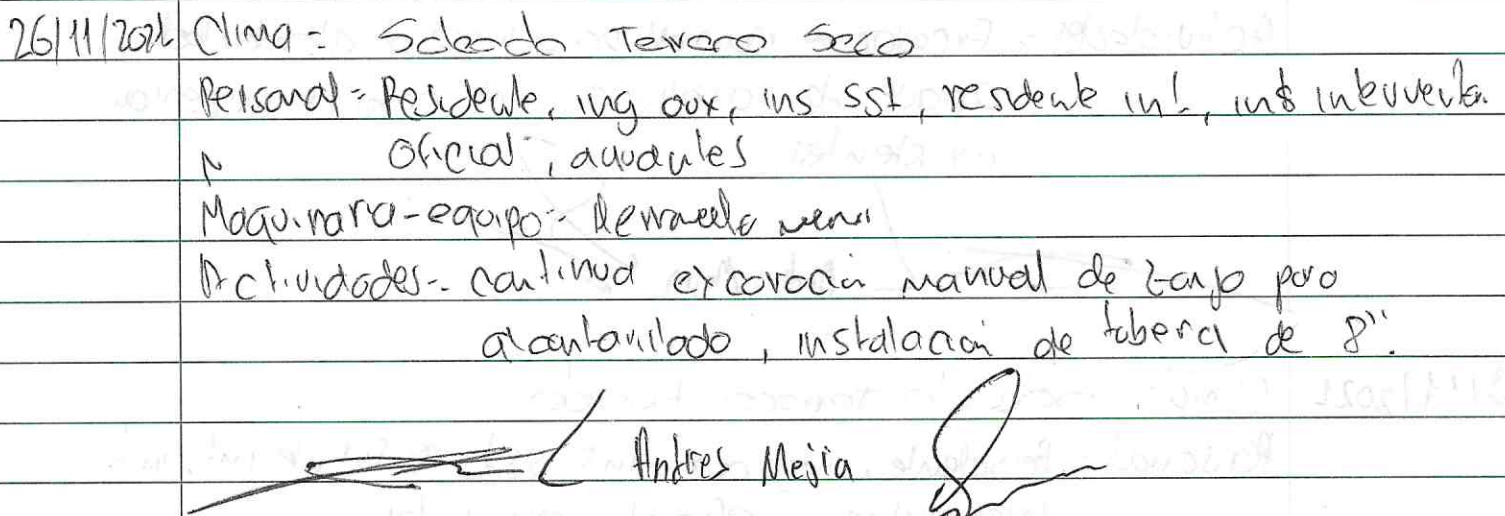 26/11/2021 Clima = Soleado Terreno Seco
Personal = Residente, ing aux, ins sst, residente int, ins interventor
oficial, ayudantes
Maquinara-equipo- Herramienta menor
Actividades- continua excavación manual de zanja para
alcantarillado, instalación de tubería de 8".
Andres Mejia